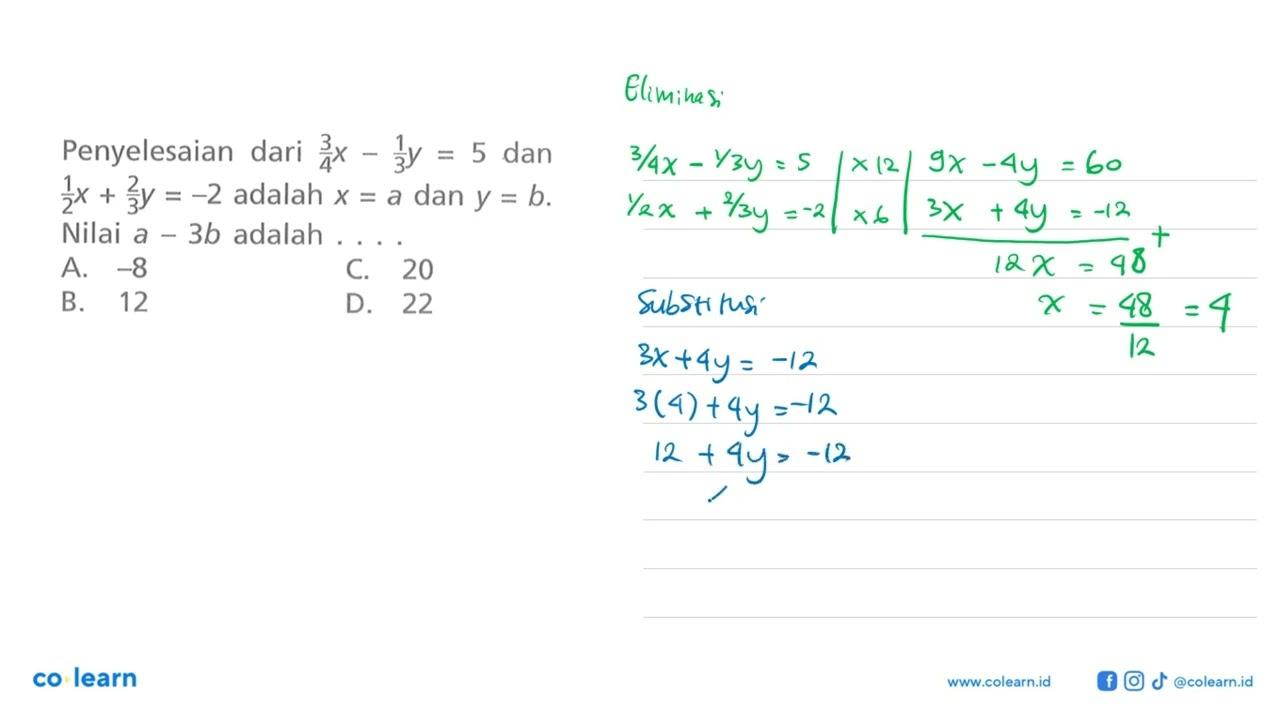 Penyelesaian dari 3/4x – 1/3y = 5 dan
1/2x + 2/3y = –2 adalah x = a dan y = b.
Nilai a – 3b adalah . . . .
A. –8 C. 20
B. 12 D. 22
Eliminasi
3/4x – 1/3y = 5 | x 12 | 9x – 4y = 60
1/2x + 2/3y = –2 | x 6 | 3x + 4y = –12
+
12x = 48
x = 48/12 = 4
Substitusi
3x + 4y = –12
3(4) + 4y = –12
12 + 4y = –12
co learn
www.colearn.id
@colearn.id